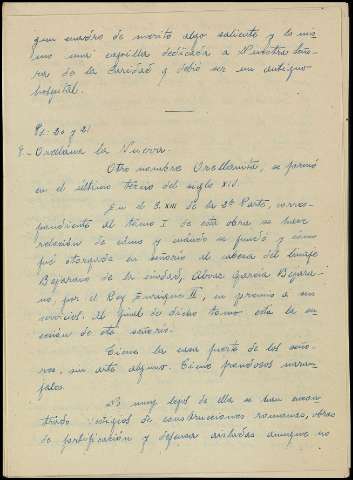 gun cuadro de merito algo saliente y lo mis
mo una capilla dedicada a Nuestra Seño-
ra de la Caridad y debió ser un antiguo
hospital.
Pl. 20 y 21
9.- Orellana la Nueva.
Otro nombre Orellanita, se formó
en el último tercio del siglo XIV.
En el C. XIII de la 3ª Parte, corres-
pondiente al tomo I de esta obra se hace
relación de cómo y cuando se fundó y cómo
fué otorgada en señorío al cabeza del linaje
Bejarano de la ciudad, Alvar García Bejara-
no por el Rey Enrique II, en premio a sus
servicios. Al final de dicho tomo está la su-
cesión de este señorío.
Tiene la casa fuerte de los seño-
res, sin arte alguno. Tiene frondosos naran-
jales.
No muy lejos de ella se han encon
trado vestigios de construcciones romanas, obras
de fortificación y defensa aisladas aunque no